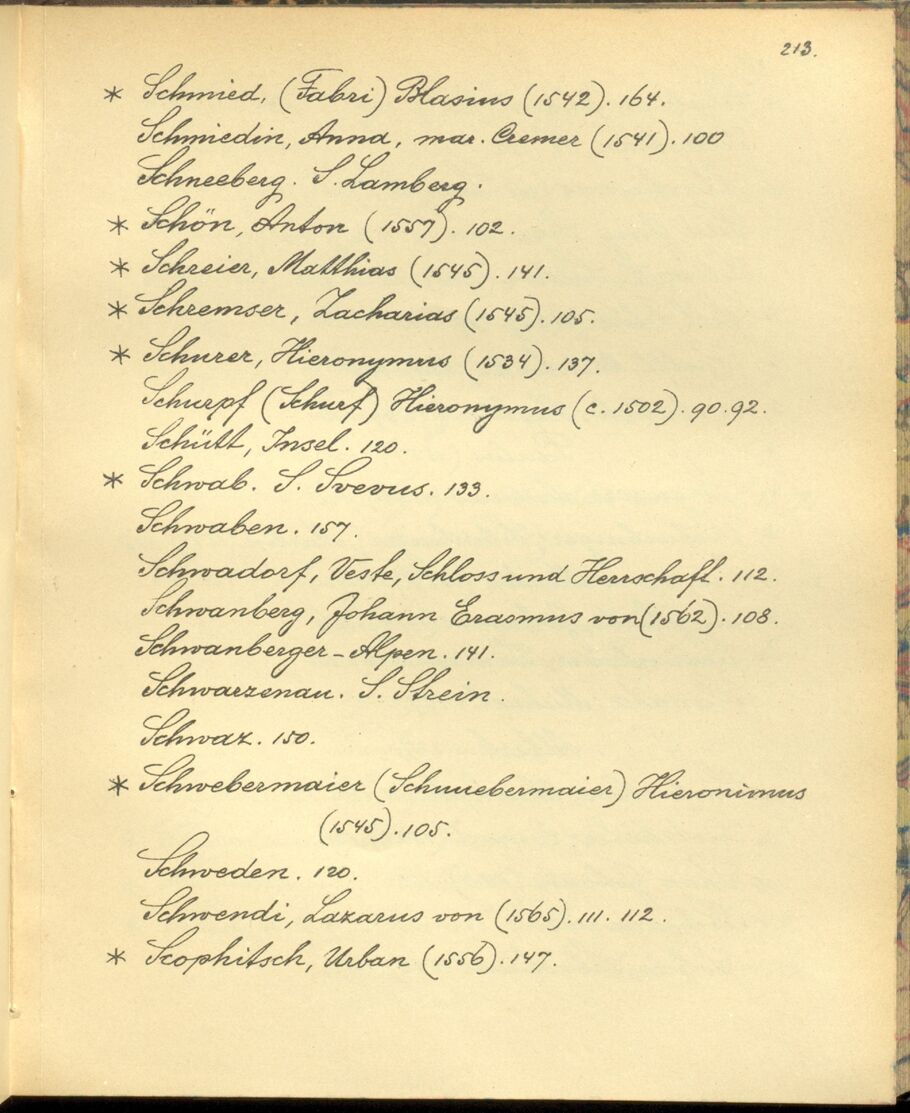 213.
* Schmied, (Fabri) Blasius (1542). 164.
Schmiedin, Anna, mar. Cremer (1541). 100
Schneeberg. S. Lamberg.
* Schön, Anton (1557). 102.
* Schreier, Matthias (1545). 141.
* Schremser, Zacharias (1545). 105.
* Schurer, Hieronymus (1534). 137.
Schurpf (Schurf) Hieronymus (c. 1502). 90. 92.
Schütt, Insel. 120.
* Schwab. S. Svevus. 133.
Schwaben. 157.
Schwadorf, Veste, Schloss und Herrschaft. 112.
Schwanberg, Johann Erasmus von (1562). 108.
Schwanberger-Alpen. 141.
Schwarzenau. S. Strein.
Schwaz. 150.
* Schwebermaier (Schuuebermaier) Hieronimus
(1545). 105.
Schweden. 120.
Schwendi, Lazarus von (1565). 111. 112.
* Scophitsch, Urban (1556). 147.